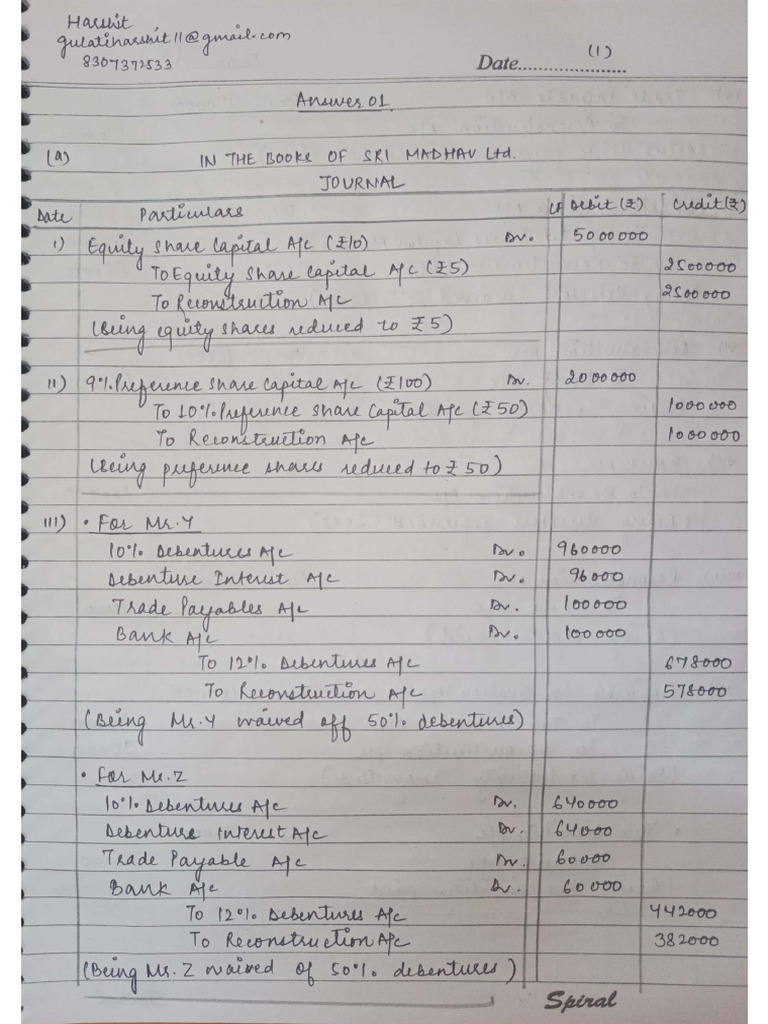 Harshit
gulatiharshit11@gmail.com
8307372533
(1)
Date.....................
Answer 01.
(a) IN THE BOOKS OF SRI MADHAV Ltd.
JOURNAL
Date Particulars LF Debit (₹) Credit (₹)
i) Equity Share Capital A/c (₹10) Dr. 5000000
To Equity Share Capital A/c (₹5) 2500000
To Reconstruction A/c 2500000
(Being equity shares reduced to ₹5)
ii) 9% Preference Share Capital A/c (₹100) Dr. 2000000
To 10% Preference Share Capital A/c (₹50) 1000000
To Reconstruction A/c 1000000
(Being preference shares reduced to ₹50)
iii) • For Mr. Y
10% Debentures A/c Dr. 960000
Debenture Interest A/c Dr. 96000
Trade Payables A/c Dr. 100000
Bank A/c Dr. 100000
To 12% Debentures A/c 678000
To Reconstruction A/c 578000
(Being Mr. Y waived off 50% debentures)
• For Mr. Z
10% Debentures A/c Dr. 640000
Debenture Interest A/c Dr. 64000
Trade Payable A/c Dr. 60000
Bank A/c Dr. 60000
To 12% Debentures A/c 442000
To Reconstruction A/c 382000
(Being Mr. Z waived of 50% debentures)
Spiral